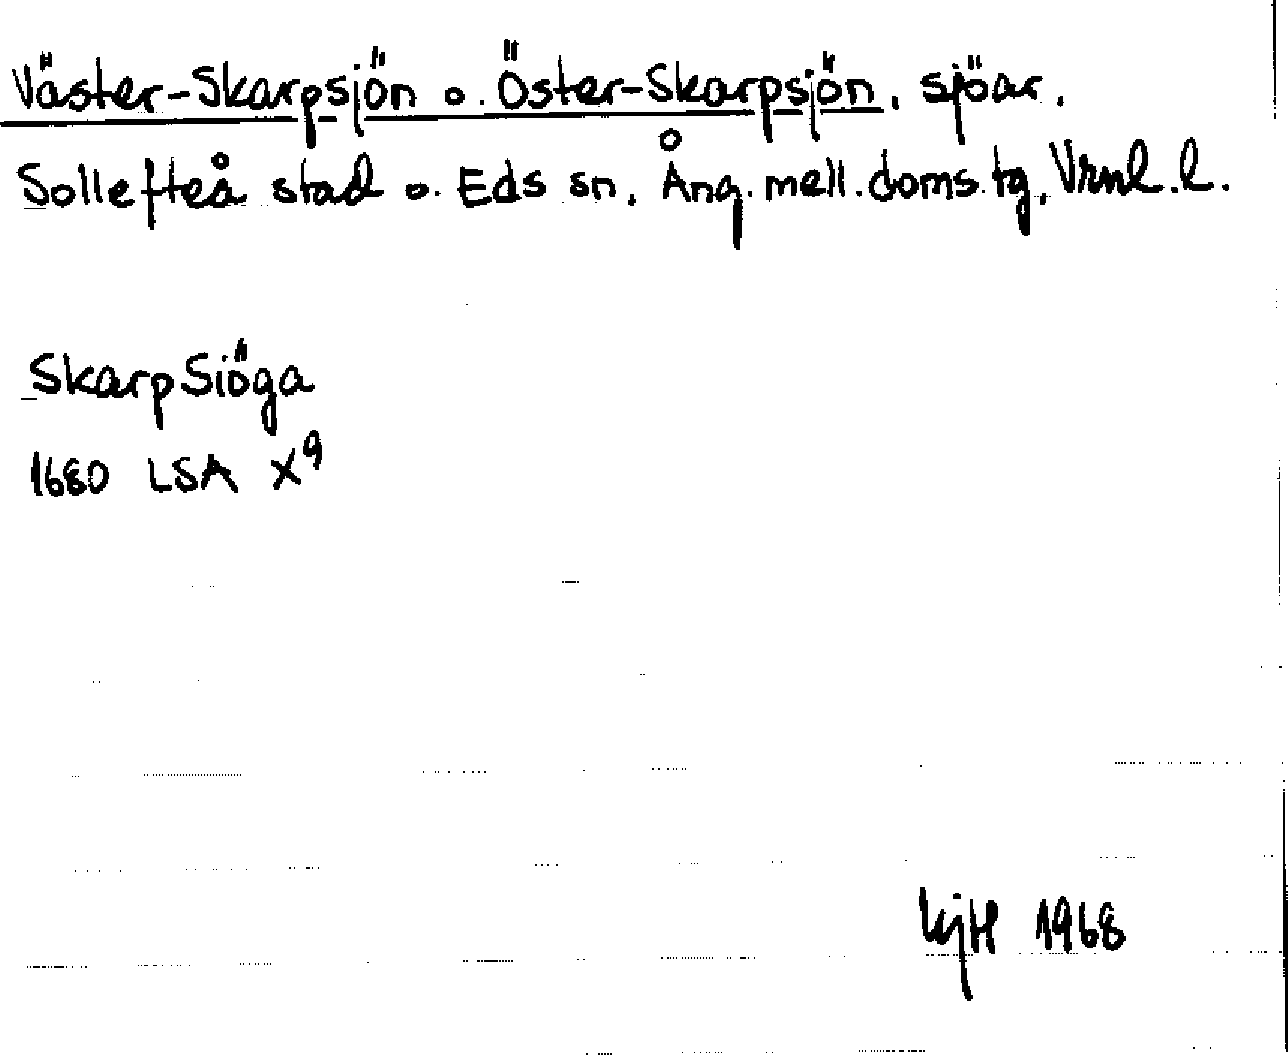 Väster-Skarpsjön o. Öster-Skarpsjön, sjöar.
Sollefteå stad o. Eds sn, Ång. mell. doms. tg, Vrnl. l.
SkarpSiöga
1680 LSA X9
1968